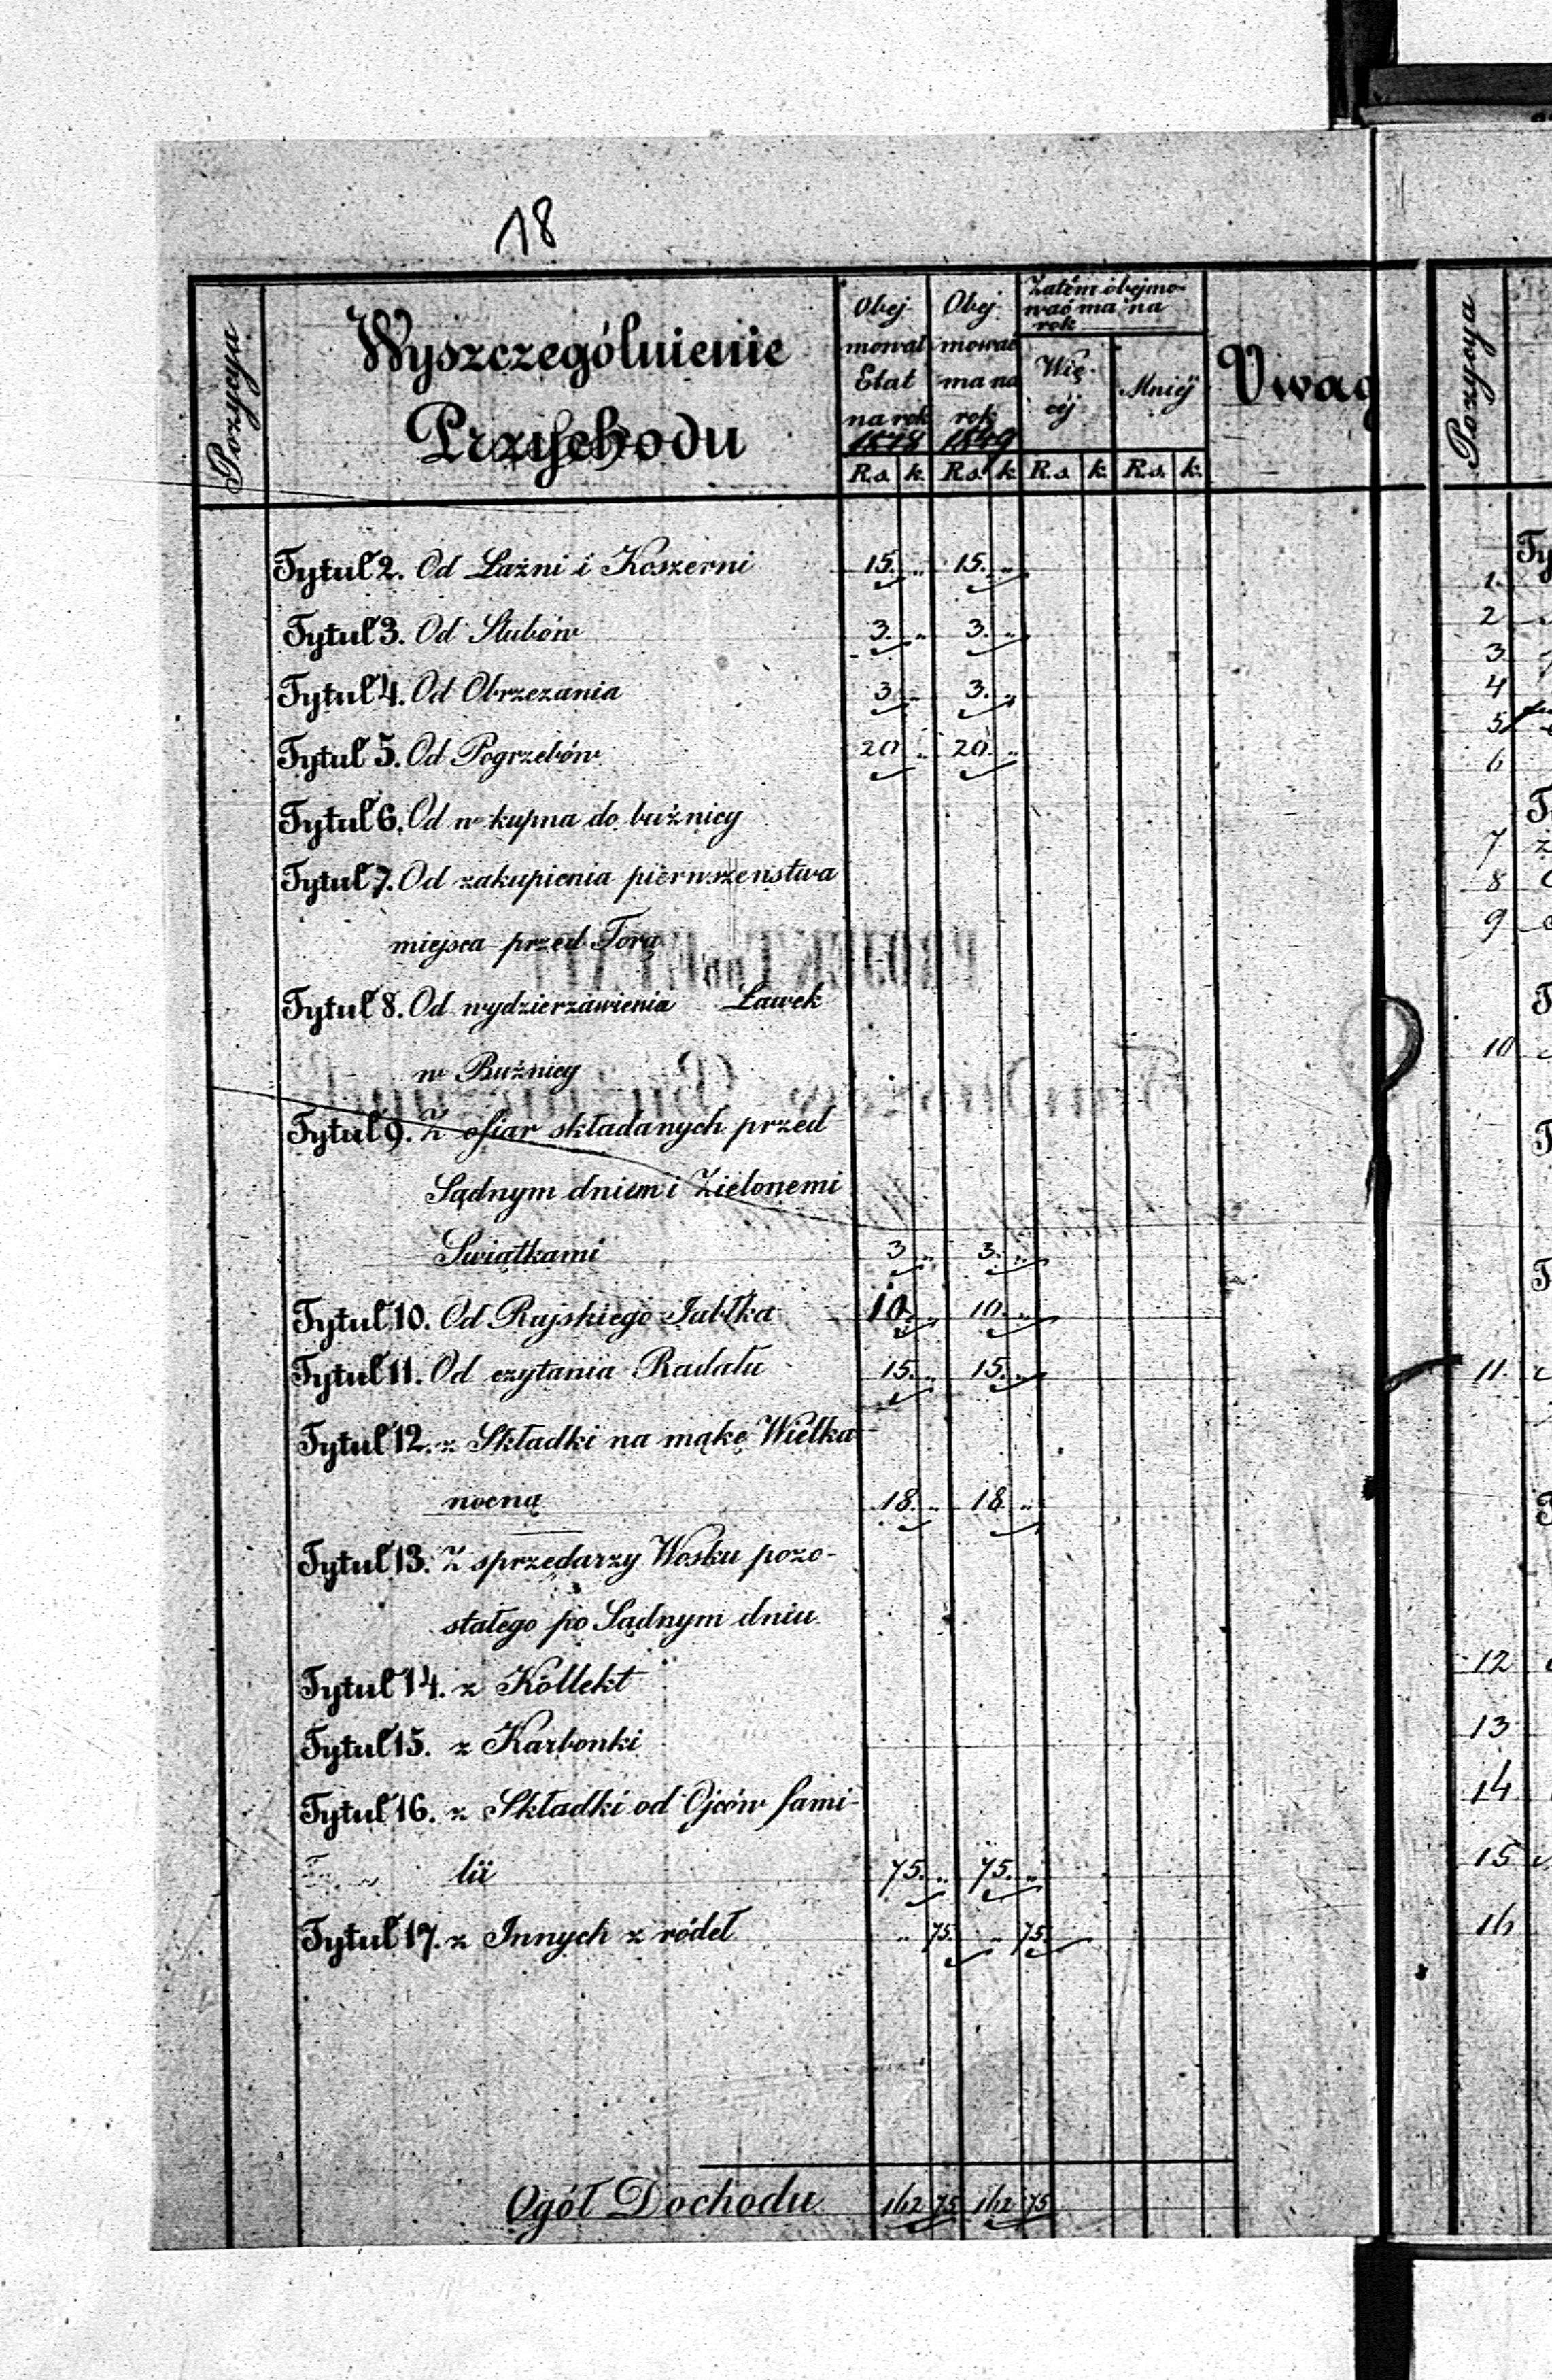 18
Pozycya
Wyszczególnienie
Przychodu
Obej-
mował
Etat
na rok
1848
Obej-
mować
ma na
rok
1849
Zatém obejmo-
wać ma na
rok
Wię-
céj
Mniéj
Uwag
R.s. k. R.s. k. R.s. k. R.s. k.
Tytuł 2. Od Łaźni i Koszerni 15. „ 15. „
Tytuł 3. Od Slubów 3. „ 3. „
Tytuł 4. Od Obrzezania 3 „ 3. „
Tytuł 5. Od Pogrzebów 20 „ 20. „
Tytuł 6. Od w kupna do bużnicy
Tytuł 7. Od zakupienia pierwszeństwa
miejsca przed Torą
Tytuł 8. Od wydzierzawienia Ławek
w Bużnicy
Tytuł 9. Z ofiar składanych przed
Sądnym dniem i Zielonemi
Swiątkami 3 „ 3. „
Tytuł 10. Od Rajskiego Jabłka 10. „ 10. „
Tytuł 11. Od czytania Radału 15. „ 15. „
Tytuł 12. z Składki na mąkę Wielka-
nocną 18. „ 18. „
Tytuł 13. Z sprzedarzy Wosku pozo-
stałego po Sądnym dniu
Tytuł 14. z Kollekt
Tytuł 15. z Karbonki
Tytuł 16. z Składki od Ojców fami-
lii 75. „ 75. „
Tytuł 17. z Innych z ródeł „ 75. „ 75.
Ogół Dochodu 162 75 162 75
Pozycya
1.
2
3
4
5
6
7
8
9
10
11.
12
13
14
15
16